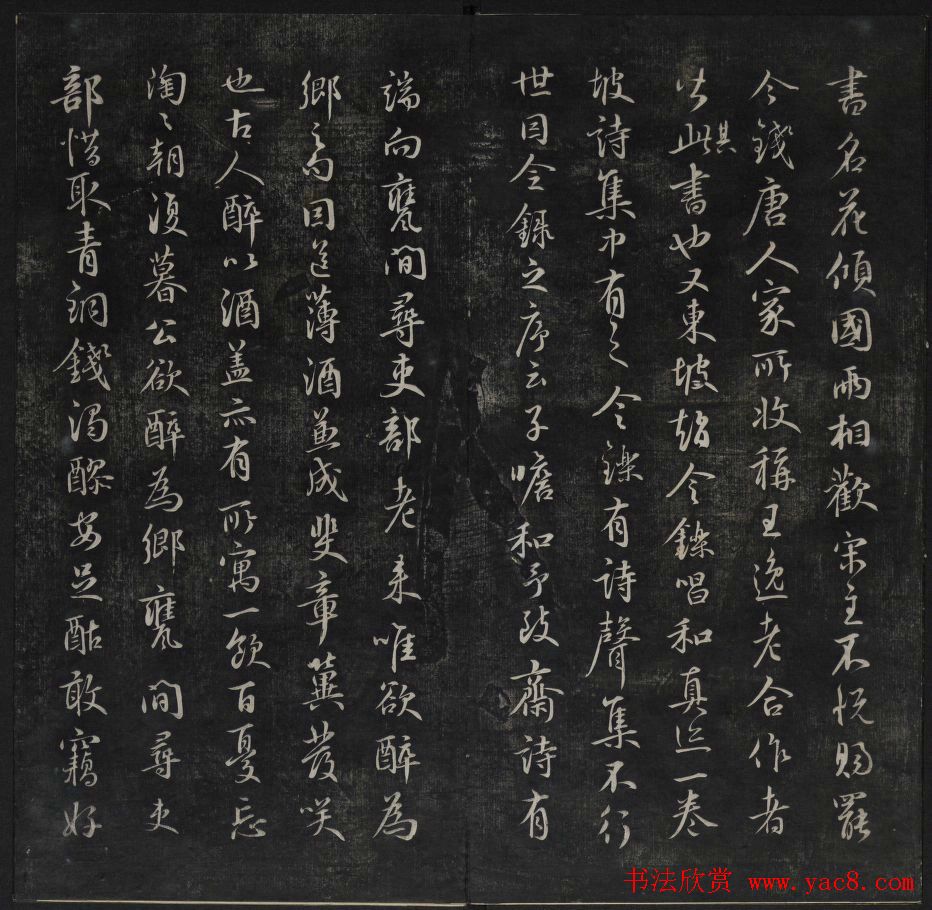 書名花傾國兩相歡宋主不悅賜罷
今錢唐人家所收稱王逸老合作者
皆此其書也又東坡趙令鑠唱和真跡一卷
坡詩集中有之令鑠有詩聲集不行
世因令錄之序云子瞻和予致齋詩有
端向甕間尋吏部老來唯欲醉為
鄉之句因送薄酒兼成斐章冀發笑
也古人醉以酒蓋亦有所寓一飲百憂忘
陶〻朝復暮公欲醉為鄉甕間尋吏
部惜取青銅錢濁醪安足酤敢竊好
书法欣赏 www.yac8.com